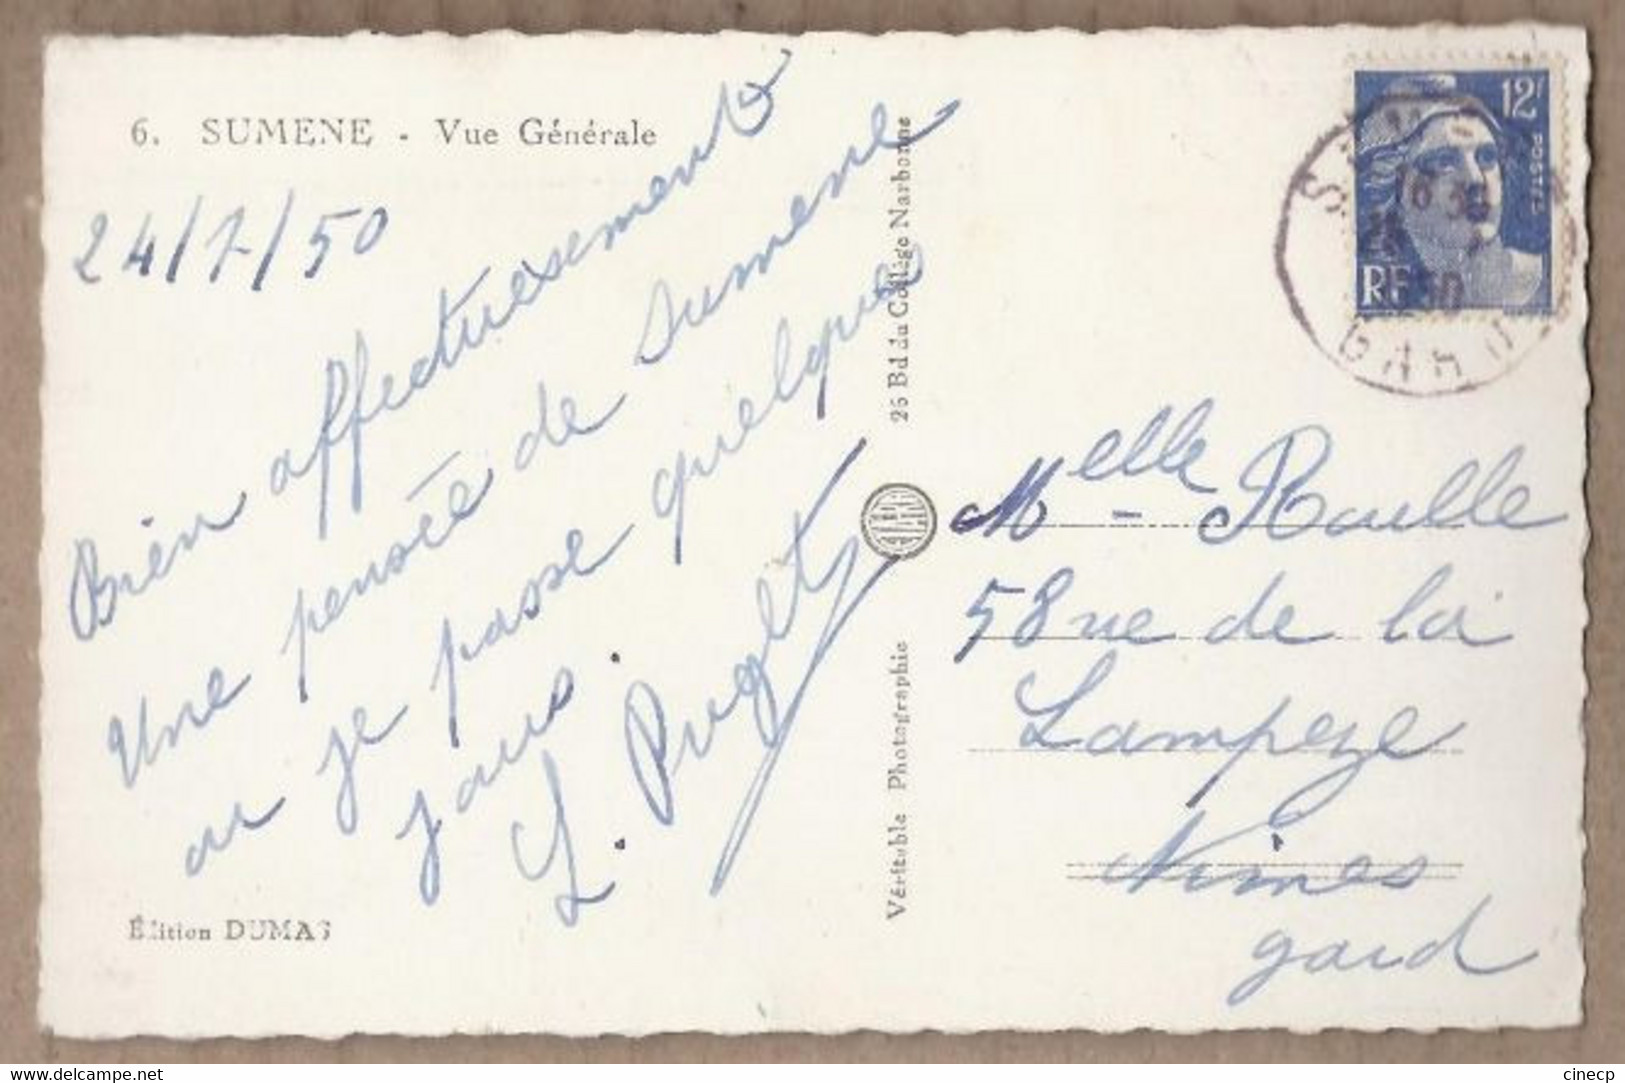 6. SUMENE - Vue Générale
24/7/50
Bien affectuesement
Une pensée de Sumene
ou je passe quelques
jours.
L. Puget
Édition DUMAS
26 Bd du Collège Narbonne
Véritable Photographie
12F
POSTES
RF
16 30
GARD
Melle - Roulle
58 rue de la
Lampeze
Nimes
gard
www.delcampe.net
cinecp